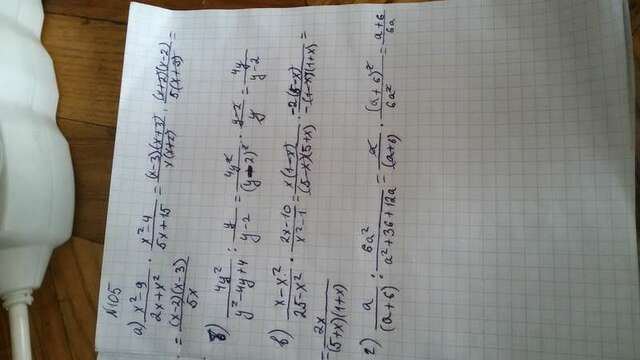 №105
а) x²-9/2x+x² · x²-4/5x+15 = (x-3)(x+3)/x(x+2) · (x+2)(x-2)/5(x+3) =
= (x-2)(x-3)/5x
б) 4y²/y²-4y+4 : y/y-2 = 4y²/(y-2)² · y-2/y = 4y/y-2
в) x-x²/25-x² · 2x-10/x²-1 = x(1-x)/(5-x)(5+x) · -2(5-x)/-(1-x)(1+x) =
= 2x/(5+x)(1+x)
г) a/(a+6) : 6a²/a²+36+12a = a/(a+6) · (a+6)²/6a² = a+6/6a